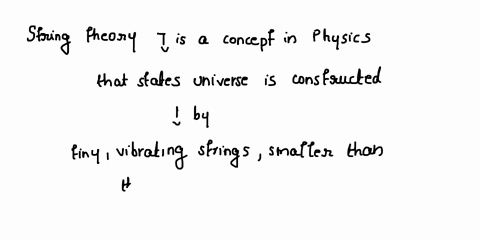 String theory → is a concept in Physics
that states universe is constructed
↓ by
tiny, vibrating strings, smaller than